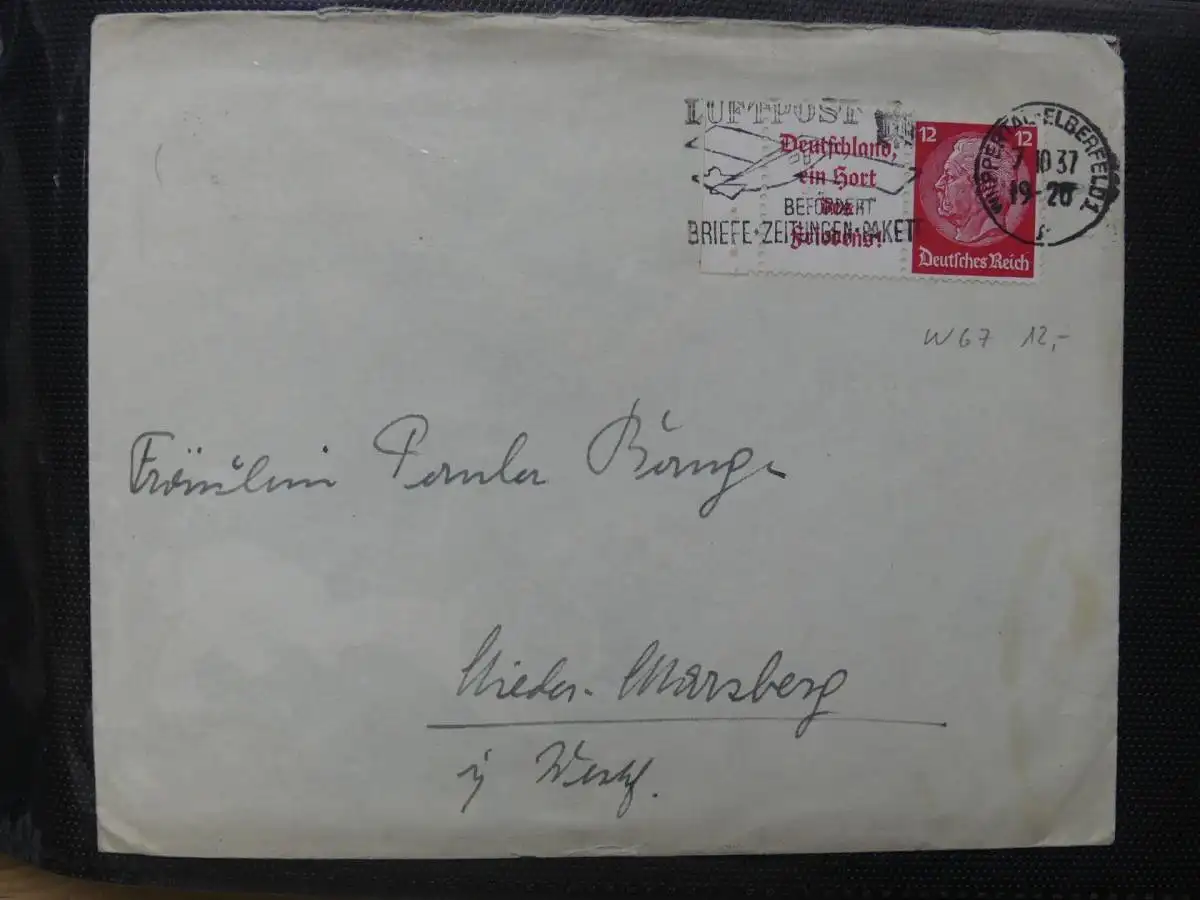 LUFTPOST
BEFÖRDERT
BRIEFE·ZEITUNGEN·PAKET
Deutschland,
ein Hort
des
Friedens!
12 12
Deutsches Reich
WUPPERTAL-ELBERFELD 1
7.10.37
19-20
f
W67 12,-
Fräulein Paula
Nieder-Marsberg
i/ Westf.